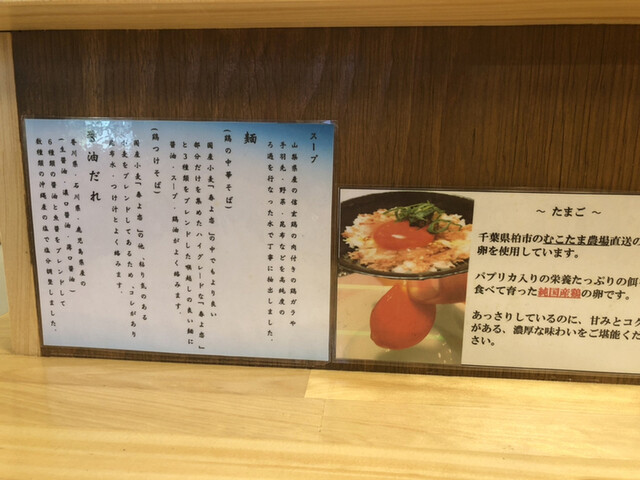 スープ
山梨県産の信玄鶏の肉付きの鶏ガラや
手羽先・野菜・昆布などを高純度の
ろ過を行なった水で丁寧に抽出しました。
麺
(鶏の中華そば)
国産小麦「春よ恋」の中でもより良い
部分だけを集めたハイグレードな「春よ恋」
と3種類をブレンドした喉越しの良い麺に
醤油・スープ・鶏油がよく絡みます。
(鶏つけそば)
国産小麦「春よ恋」の他、粘り気のある
小麦をブレンドしてあるため、コシがあり
昆布水・つけ汁とよく絡みます。
醤油だれ
香川県・石川県・鹿児島県産の
(生醤油・濃口醤油・薄口醤油)
6種類の醤油と魚醤をブレンドして
数種類の沖縄産の塩で塩分調整しました。
～ たまご ～
千葉県柏市のむこたま農場直送の
卵を使用しています。
パプリカ入りの栄養たっぷりの餌
食べて育った純国産鶏の卵です。
あっさりしているのに、甘みとコク
がある、濃厚な味わいをご堪能くだ
さい。